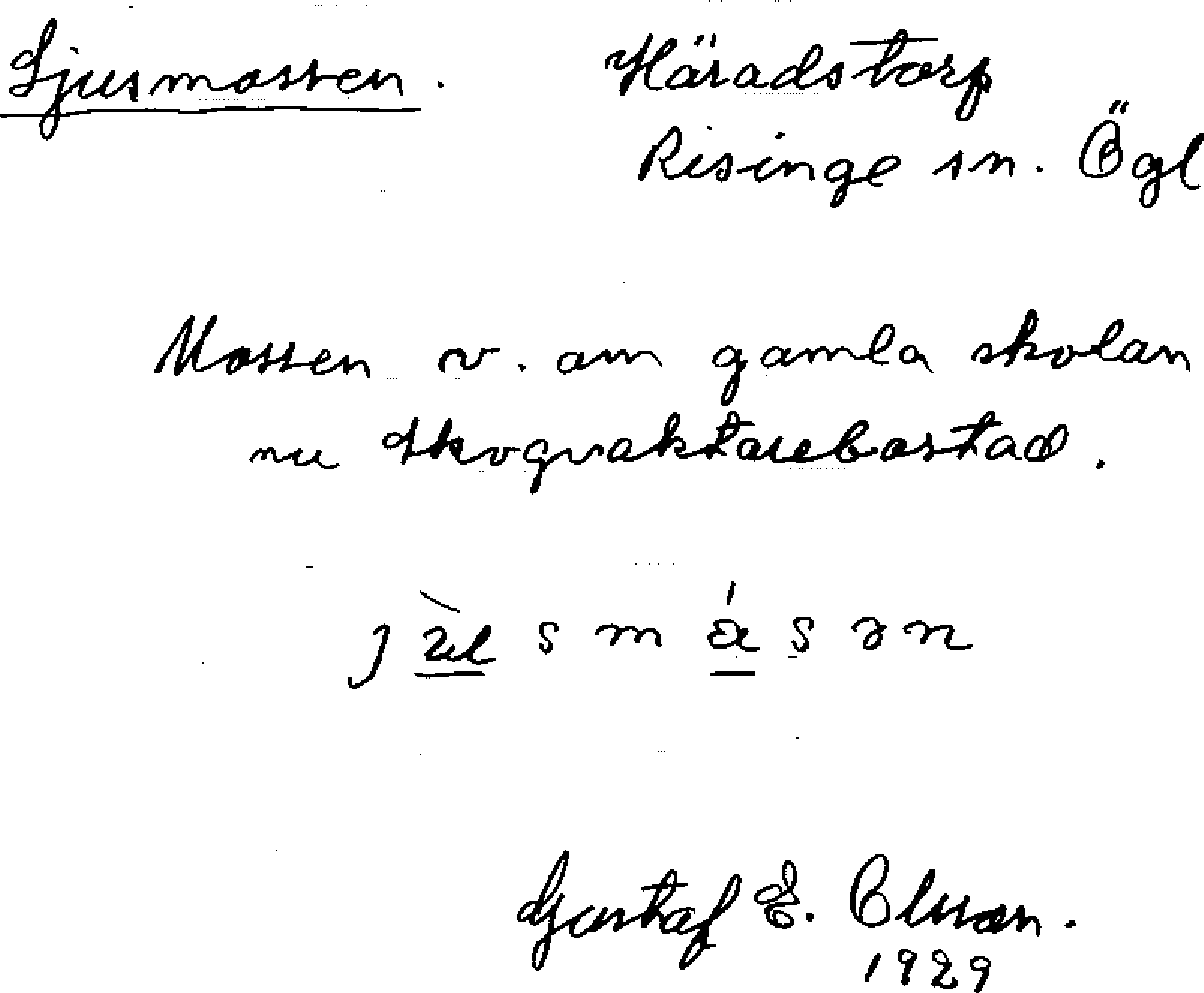 Ljusmossen. Häradstorp
Risinge sn. Ögl
Mossen v. om gamla skolan
nu Skogvaktarebostad.
Gustaf E. Olsson.
1929